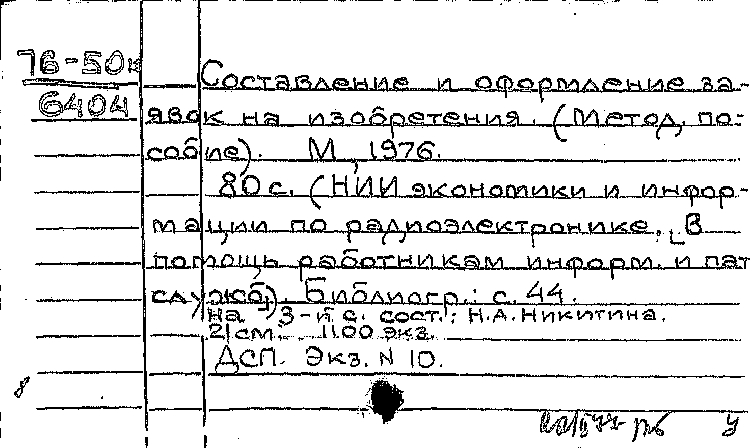 76-50к
6404
Составление и оформление за-
явок на изобретения. (Метод. по-
собие). М., 1976.
80 с. (НИИ экономики и инфор-
мации по радиоэлектронике. В
помощь работникам информ. и пат
служб). Библиогр.: с. 44.
На 3-й с. сост.: Н.А.Никитина.
21 см. 1100 экз.
ДСП. Экз. N 10.
8